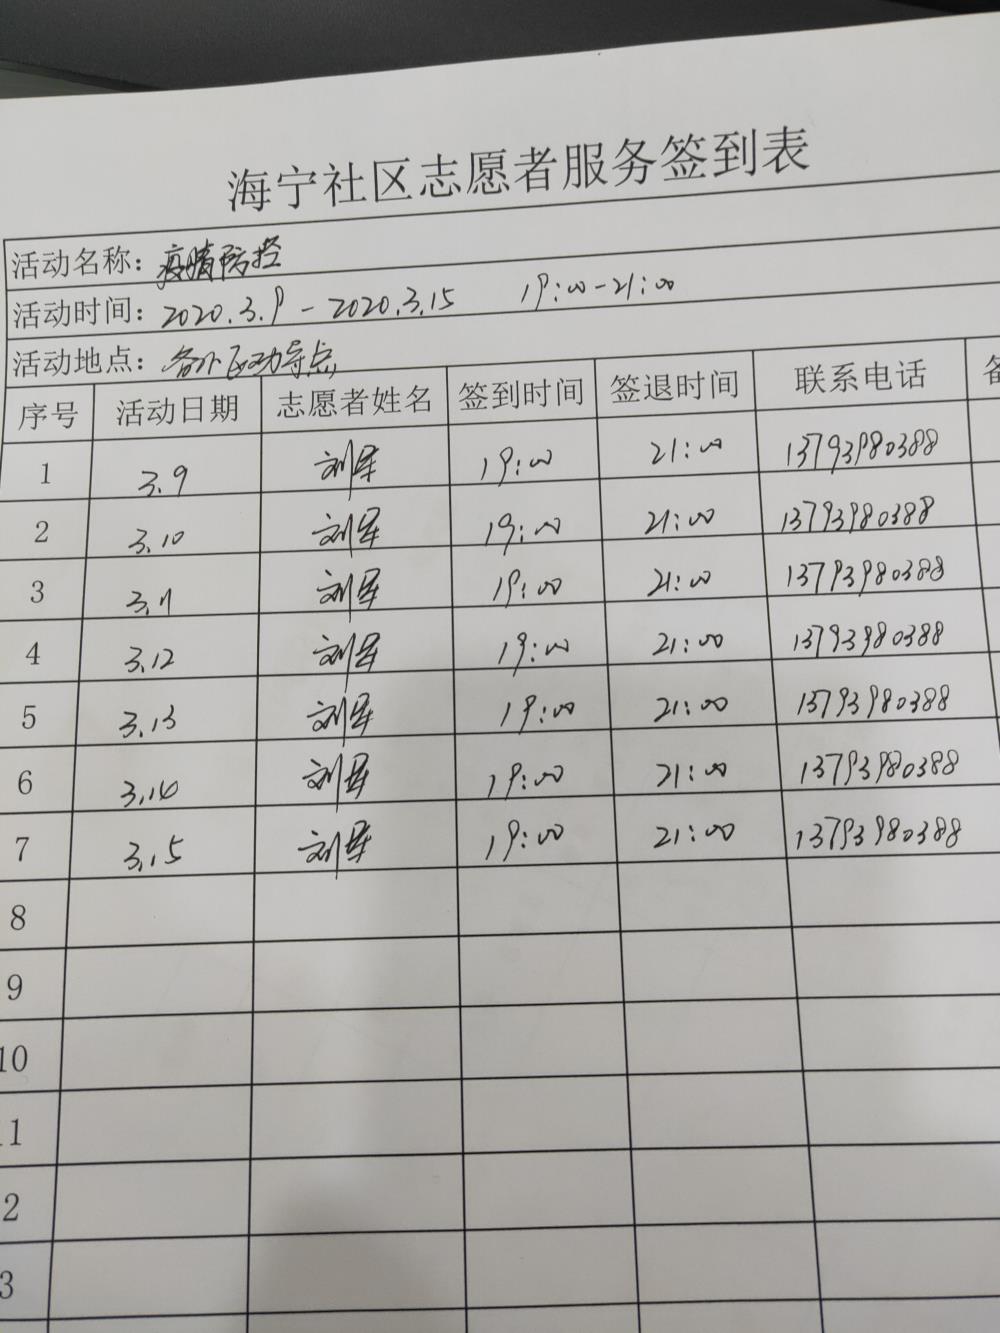 海宁社区志愿者服务签到表
活动名称：疫情防控
活动时间：2020.3.9-2020.3.15 19:00-21:00
活动地点：各小区劝导点
序号 活动日期 志愿者姓名 签到时间 签退时间 联系电话 备
1 3.9 刘军 19:00 21:00 13793980388
2 3.10 刘军 19:00 21:00 13793980388
3 3.11 刘军 19:00 21:00 13793980388
4 3.12 刘军 19:00 21:00 13793980388
5 3.13 刘军 19:00 21:00 13793980388
6 3.14 刘军 19:00 21:00 13793980388
7 3.15 刘军 19:00 21:00 13793980388
8
9
10
11
2
3